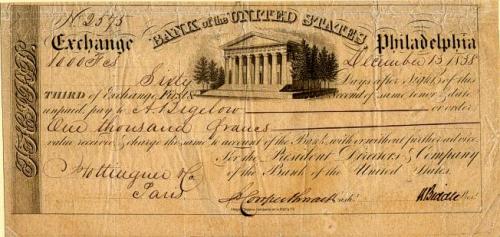 No 2595
BANK of the UNITED STATES.
Exchange Philadelphia
1000 Fcs December 13 1838
Sixty Days after Sight of this
THIRD of Exchange, First & Second of same tenor & date
unpaid, pay to A. Bigelow or order
One thousand francs
value received & charge the same to account of the Bank, with or without further advice
For the President Directors & Company
of the Bank of the United States.
Hottinguer & Co
Paris
Cash. N Biddle Pres.